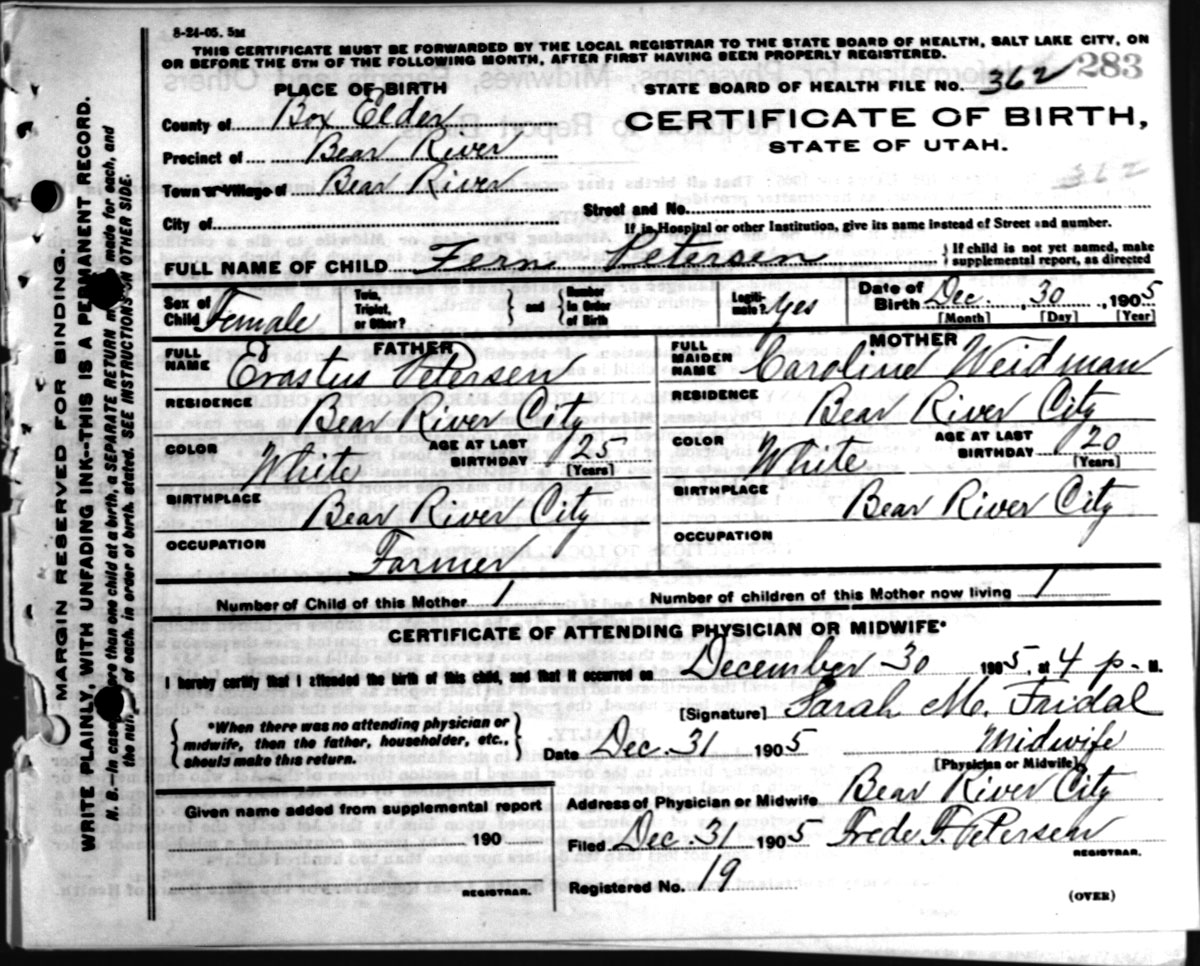 8-24-05. 5M
THIS CERTIFICATE MUST BE FORWARDED BY THE LOCAL REGISTRAR TO THE STATE BOARD OF HEALTH, SALT LAKE CITY, ON
OR BEFORE THE 5TH OF THE FOLLOWING MONTH, AFTER FIRST HAVING BEEN PROPERLY REGISTERED.
283
PLACE OF BIRTH
STATE BOARD OF HEALTH FILE No. 362
County of Box Elder
CERTIFICATE OF BIRTH,
STATE OF UTAH.
Precinct of Bear River
362
Town or Village of Bear River
Street and No.
City of
If in Hospital or other Institution, give its name instead of Street and number.
FULL NAME OF CHILD Fern Petersen
If child is not yet named, make
supplemental report, as directed
Sex of Child Female
Twin, Triplet, or Other?
and
Number in Order of Birth
Legitimate? Yes
Date of Birth Dec. 30, 1905
[Month] [Day] [Year]
FATHER
FULL NAME Erastus Petersen
RESIDENCE Bear River City
COLOR White
AGE AT LAST BIRTHDAY 25
[Years]
BIRTHPLACE Bear River City
OCCUPATION Farmer
MOTHER
FULL MAIDEN NAME Caroline Weidman
RESIDENCE Bear River City
COLOR White
AGE AT LAST BIRTHDAY 20
[Years]
BIRTHPLACE Bear River City
OCCUPATION
Number of Child of this Mother 1
Number of children of this Mother now living 1
CERTIFICATE OF ATTENDING PHYSICIAN OR MIDWIFE*
I hereby certify that I attended the birth of this child, and that it occurred on December 30 1905, at 4 p. M.
*When there was no attending physician or
midwife, then the father, householder, etc.,
should make this return.
[Signature] Sarah M. Fridal
Date Dec. 31 1905 Midwife
[Physician or Midwife]
Given name added from supplemental report
190
REGISTRAR.
Address of Physician or Midwife Bear River City
Filed Dec. 31 1905 Frede F. Petersen
REGISTRAR.
Registered No. 19
(OVER)
MARGIN RESERVED FOR BINDING.
WRITE PLAINLY, WITH UNFADING INK--THIS IS A PERMANENT RECORD.
N. B.--In case more than one child at a birth, a SEPARATE RETURN must be made for each, and
the number of each, in order of birth, stated. SEE INSTRUCTIONS ON OTHER SIDE.